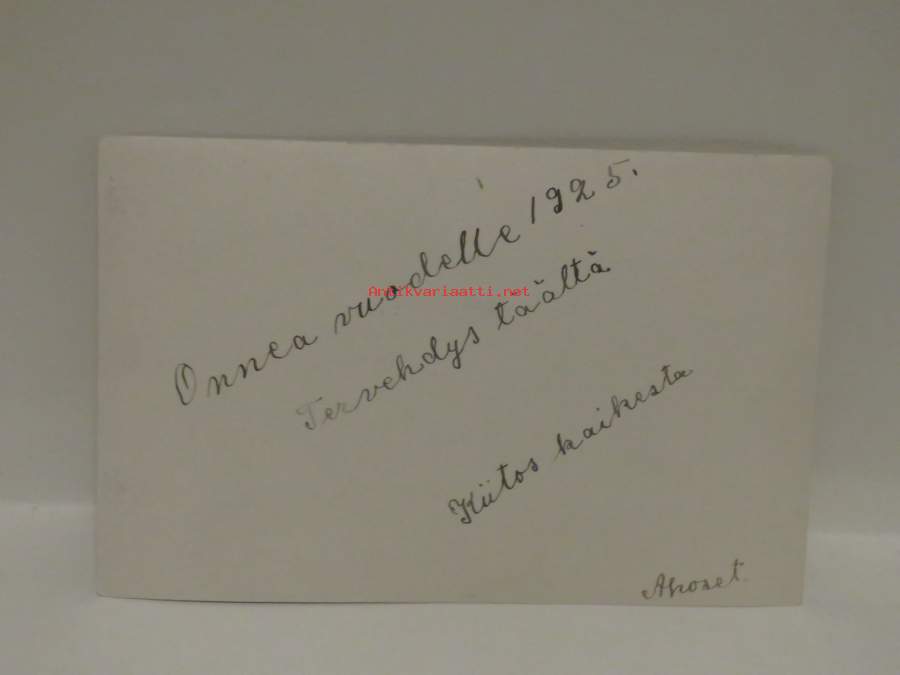 Onnea vuodelle 1925.
Antikvariaatti.net
Tervehdys täältä
Kiitos kaikesta
Ahoset.